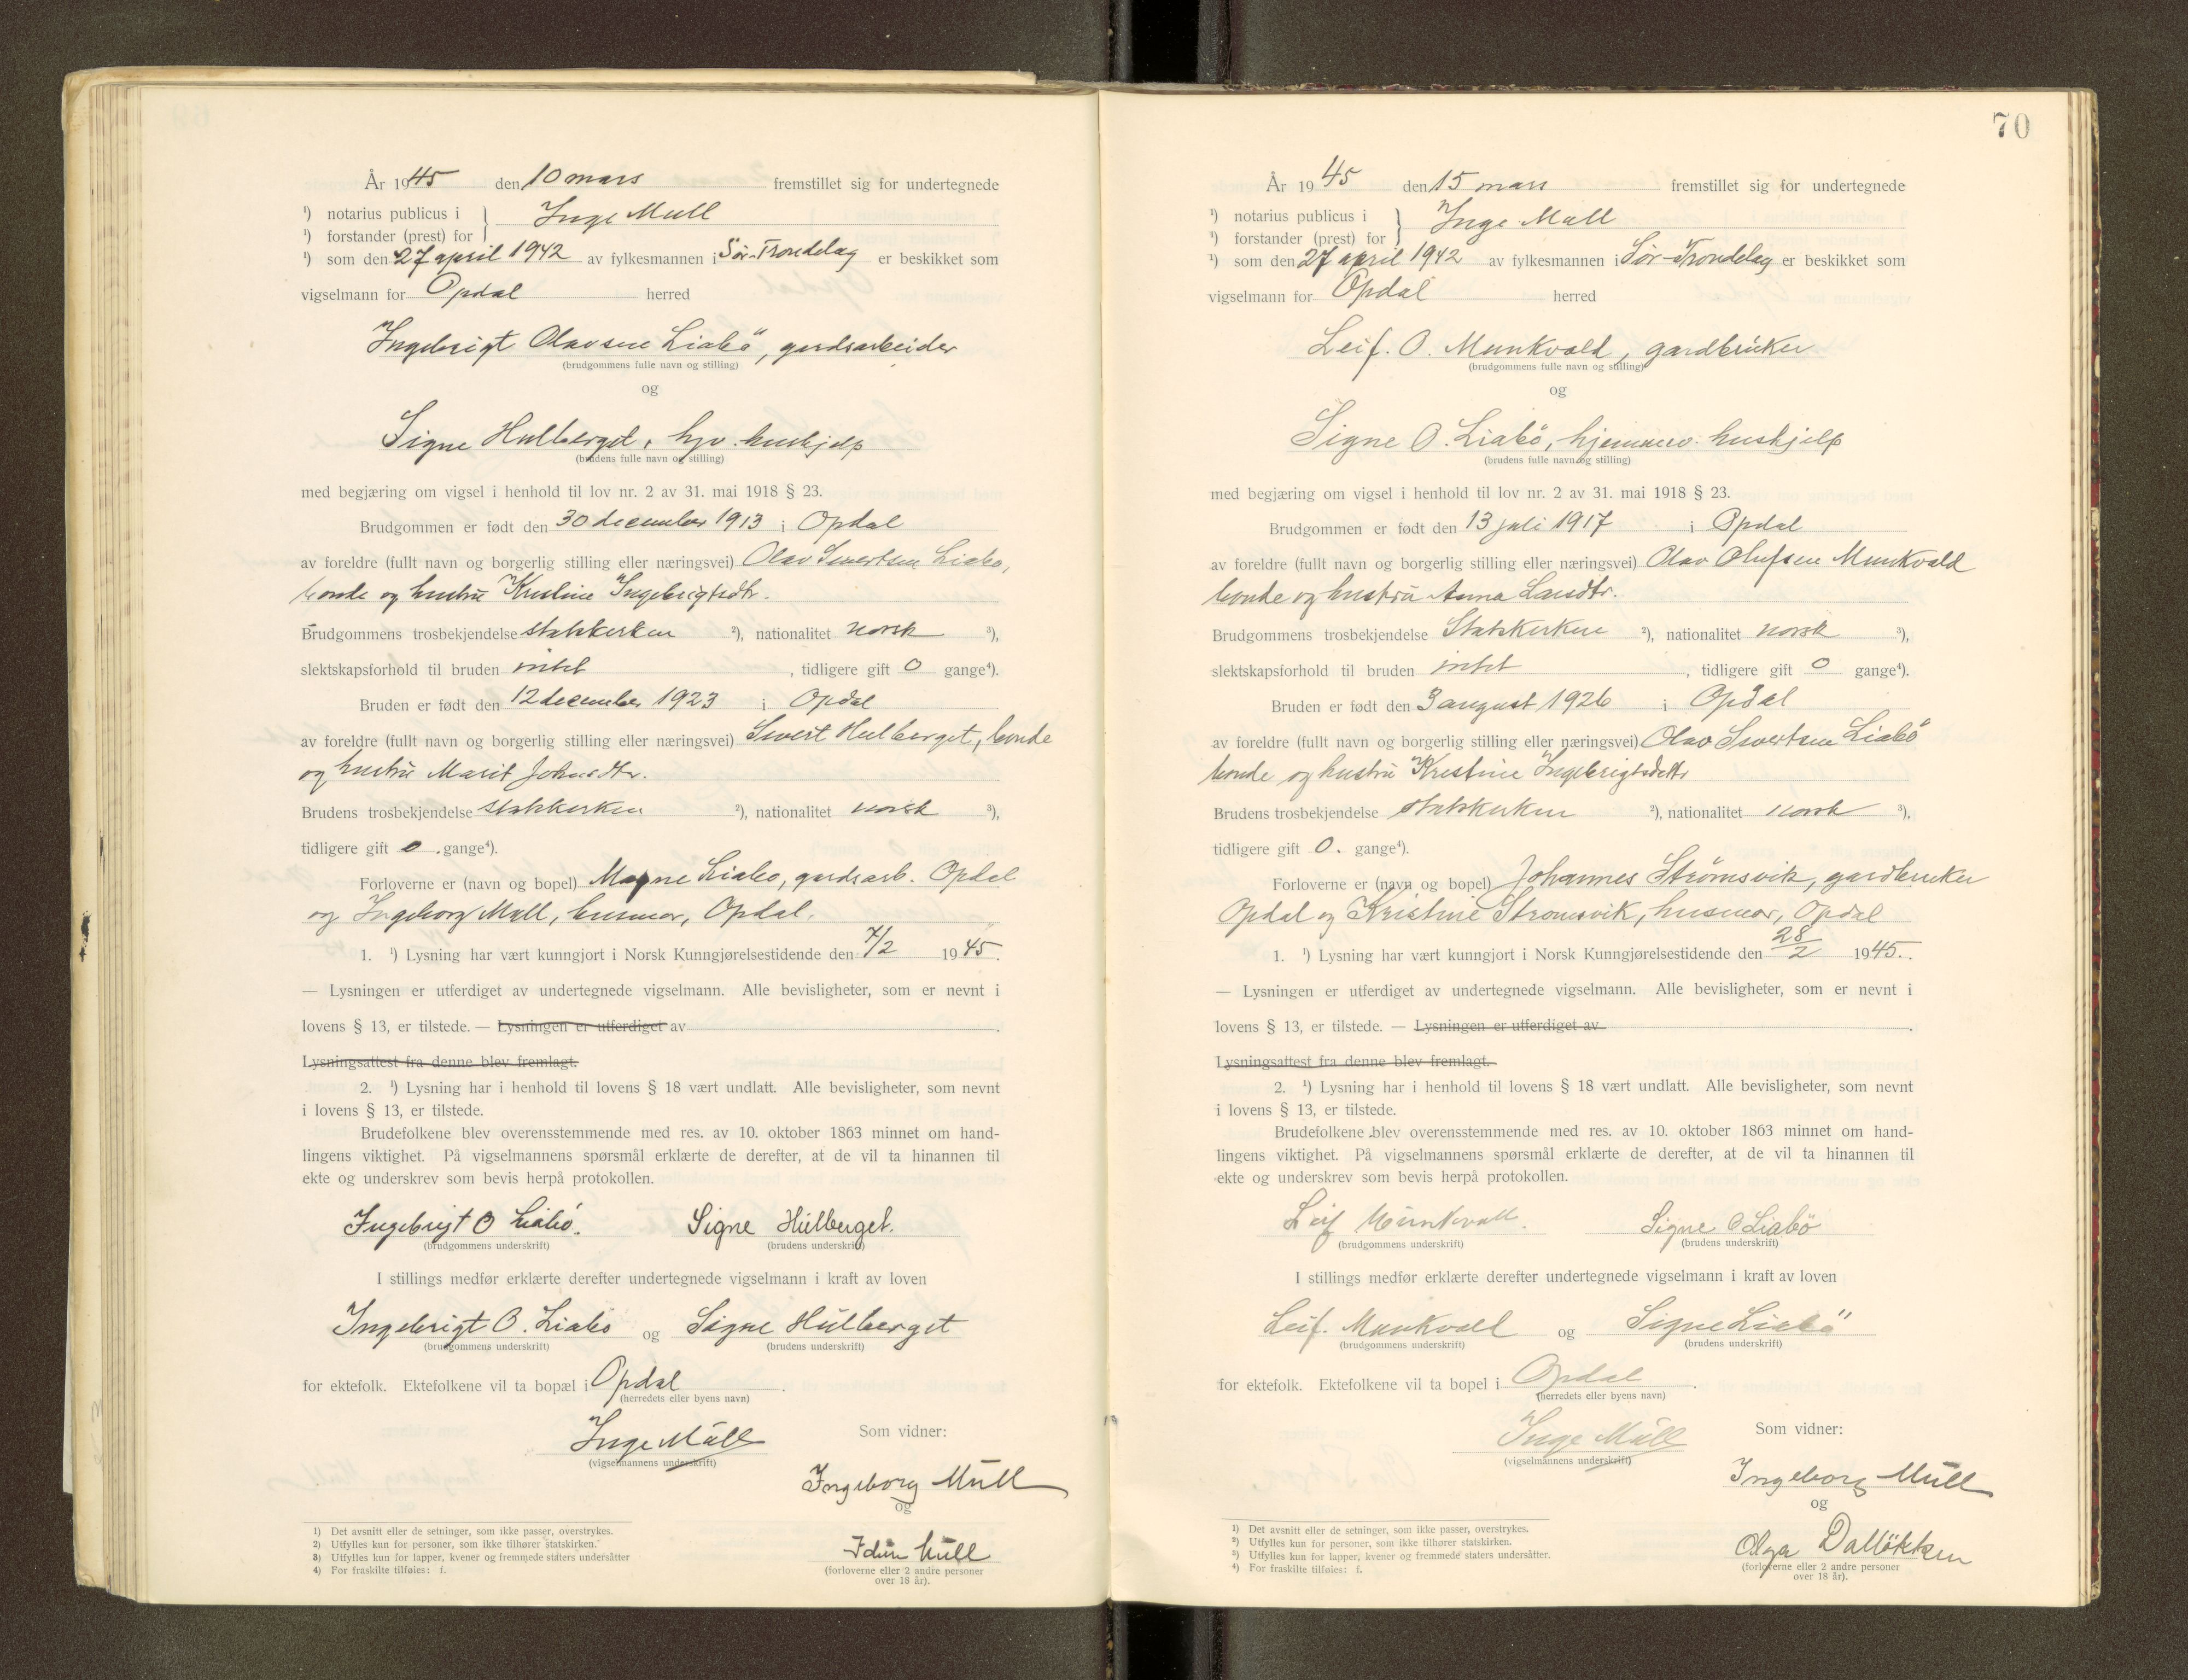 År 1945 den 10 mars fremstillet sig for undertegnede
¹) notarius publicus i } Inge Mull
¹) forstander (prest) for
¹) som den 27 april 1942 av fylkesmannen i Sør-Trondelag er beskikket som
vigselmann for Opdal herred
Ingebrigt Olavsen Liabö, gardsarbeider
(brudgommens fulle navn og stilling)
og
Signe Hulberget, hjv. hushjelp
(brudens fulle navn og stilling)
med begjæring om vigsel i henhold til lov nr. 2 av 31. mai 1918 § 23.
Brudgommen er født den 30 december 1913 i Opdal
av foreldre (fullt navn og borgerlig stilling eller næringsvei) Olav Sivertsen Liabo,
bonde og hustru Kristine Ingebrigtsdtr.
Brudgommens trosbekjendelse statskirken ²), nationalitet norsk ³),
slektskapsforhold til bruden intet, tidligere gift 0 gange⁴).
Bruden er født den 12 december 1923 i Opdal
av foreldre (fullt navn og borgerlig stilling eller næringsvei) Sivert Hulberget, bonde
og hustru Marit Johnsdtr.
Brudens trosbekjendelse statskirken ²), nationalitet norsk ³),
tidligere gift 0 . gange⁴).
Forloverne er (navn og bopel) Magne Liabo, gardsarb. Opdal
og Ingeborg Mull, husmor, Opdal.
1. ¹) Lysning har vært kunngjort i Norsk Kunngjørelsestidende den 7/2 1945.
— Lysningen er utferdiget av undertegnede vigselmann. Alle bevisligheter, som er nevnt i
lovens § 13, er tilstede. — Lysningen er utferdiget av
Lysningsattest fra denne blev fremlagt.
2. ¹) Lysning har i henhold til lovens § 18 vært undlatt. Alle bevisligheter, som nevnt
i lovens § 13, er tilstede.
Brudefolkene blev overensstemmende med res. av 10. oktober 1863 minnet om hand-
lingens viktighet. På vigselmannens spørsmål erklærte de derefter, at de vil ta hinannen til
ekte og underskrev som bevis herpå protokollen.
Ingebrigt O Liabö. Signe Hulberget.
(brudgommens underskrift) (brudens underskrift)
I stillings medfør erklærte derefter undertegnede vigselmann i kraft av loven
Ingebrigt O. Liabo og Signe Hulberget
(brudgommens underskrift) (brudens underskrift)
for ektefolk. Ektefolkene vil ta bopæl i Opdal.
(herredets eller byens navn)
Inge Mull Som vidner:
(vigselmannens underskrift)
Ingeborg Mull
og
Idun Mull
(forloverne eller 2 andre personer
over 18 år).
1) Det avsnitt eller de setninger, som ikke passer, overstrykes.
2) Utfylles kun for personer, som ikke tilhører statskirken.
3) Utfylles kun for lapper, kvener og fremmede staters undersåtter
4) For fraskilte tilføies: f.
70
År 1945 den 15 mars fremstillet sig for undertegnede
¹) notarius publicus i } Inge Mull
¹) forstander (prest) for
¹) som den 27 april 1942 av fylkesmannen i Sør-Trondelag er beskikket som
vigselmann for Opdal herred
Leif. O. Munkvold, gardbruker
(brudgommens fulle navn og stilling)
og
Signe O. Liabö, hjemmev. hushjelp
(brudens fulle navn og stilling)
med begjæring om vigsel i henhold til lov nr. 2 av 31. mai 1918 § 23.
Brudgommen er født den 13 juli 1917 i Opdal
av foreldre (fullt navn og borgerlig stilling eller næringsvei) Olav Olufsen Munkvold
bonde og hustru Anna Larsdtr.
Brudgommens trosbekjendelse Statskirken ²), nationalitet norsk ³),
slektskapsforhold til bruden intet, tidligere gift 0 gange⁴).
Bruden er født den 3 august 1926 i Opdal
av foreldre (fullt navn og borgerlig stilling eller næringsvei) Olav Sivertsen Liabö
bonde og hustru Kristine Ingebrigtsdtr
Brudens trosbekjendelse statskirken ²), nationalitet norsk ³),
tidligere gift 0. gange⁴).
Forloverne er (navn og bopel) Johannes Strømsvik, gardbruker
Opdal og Kristine Stromsvik, husmor, Opdal
1. ¹) Lysning har vært kunngjort i Norsk Kunngjørelsestidende den 28/2 1945.
— Lysningen er utferdiget av undertegnede vigselmann. Alle bevisligheter, som er nevnt i
lovens § 13, er tilstede. — Lysningen er utferdiget av
Lysningsattest fra denne blev fremlagt.
2. ¹) Lysning har i henhold til lovens § 18 vært undlatt. Alle bevisligheter, som nevnt
i lovens § 13, er tilstede.
Brudefolkene blev overensstemmende med res. av 10. oktober 1863 minnet om hand-
lingens viktighet. På vigselmannens spørsmål erklærte de derefter, at de vil ta hinannen til
ekte og underskrev som bevis herpå protokollen.
Leif Munkvoll. Signe O Liabö
(brudgommens underskrift) (brudens underskrift)
I stillings medfør erklærte derefter undertegnede vigselmann i kraft av loven
Leif. Munkvoll og Signe Liabö
(brudgommens underskrift) (brudens underskrift)
for ektefolk. Ektefolkene vil ta bopel i Opdal.
(herredets eller byens navn)
Inge Mull Som vidner:
(vigselmannens underskrift)
Ingeborg Mull
og
Olga Dalløkken
(forloverne eller 2 andre personer
over 18 år).
1) Det avsnitt eller de setninger, som ikke passer, overstrykes.
2) Utfylles kun for personer, som ikke tilhører statskirken.
3) Utfylles kun for lapper, kvener og fremmede staters undersåtter.
4) For fraskilte tilføies: f.